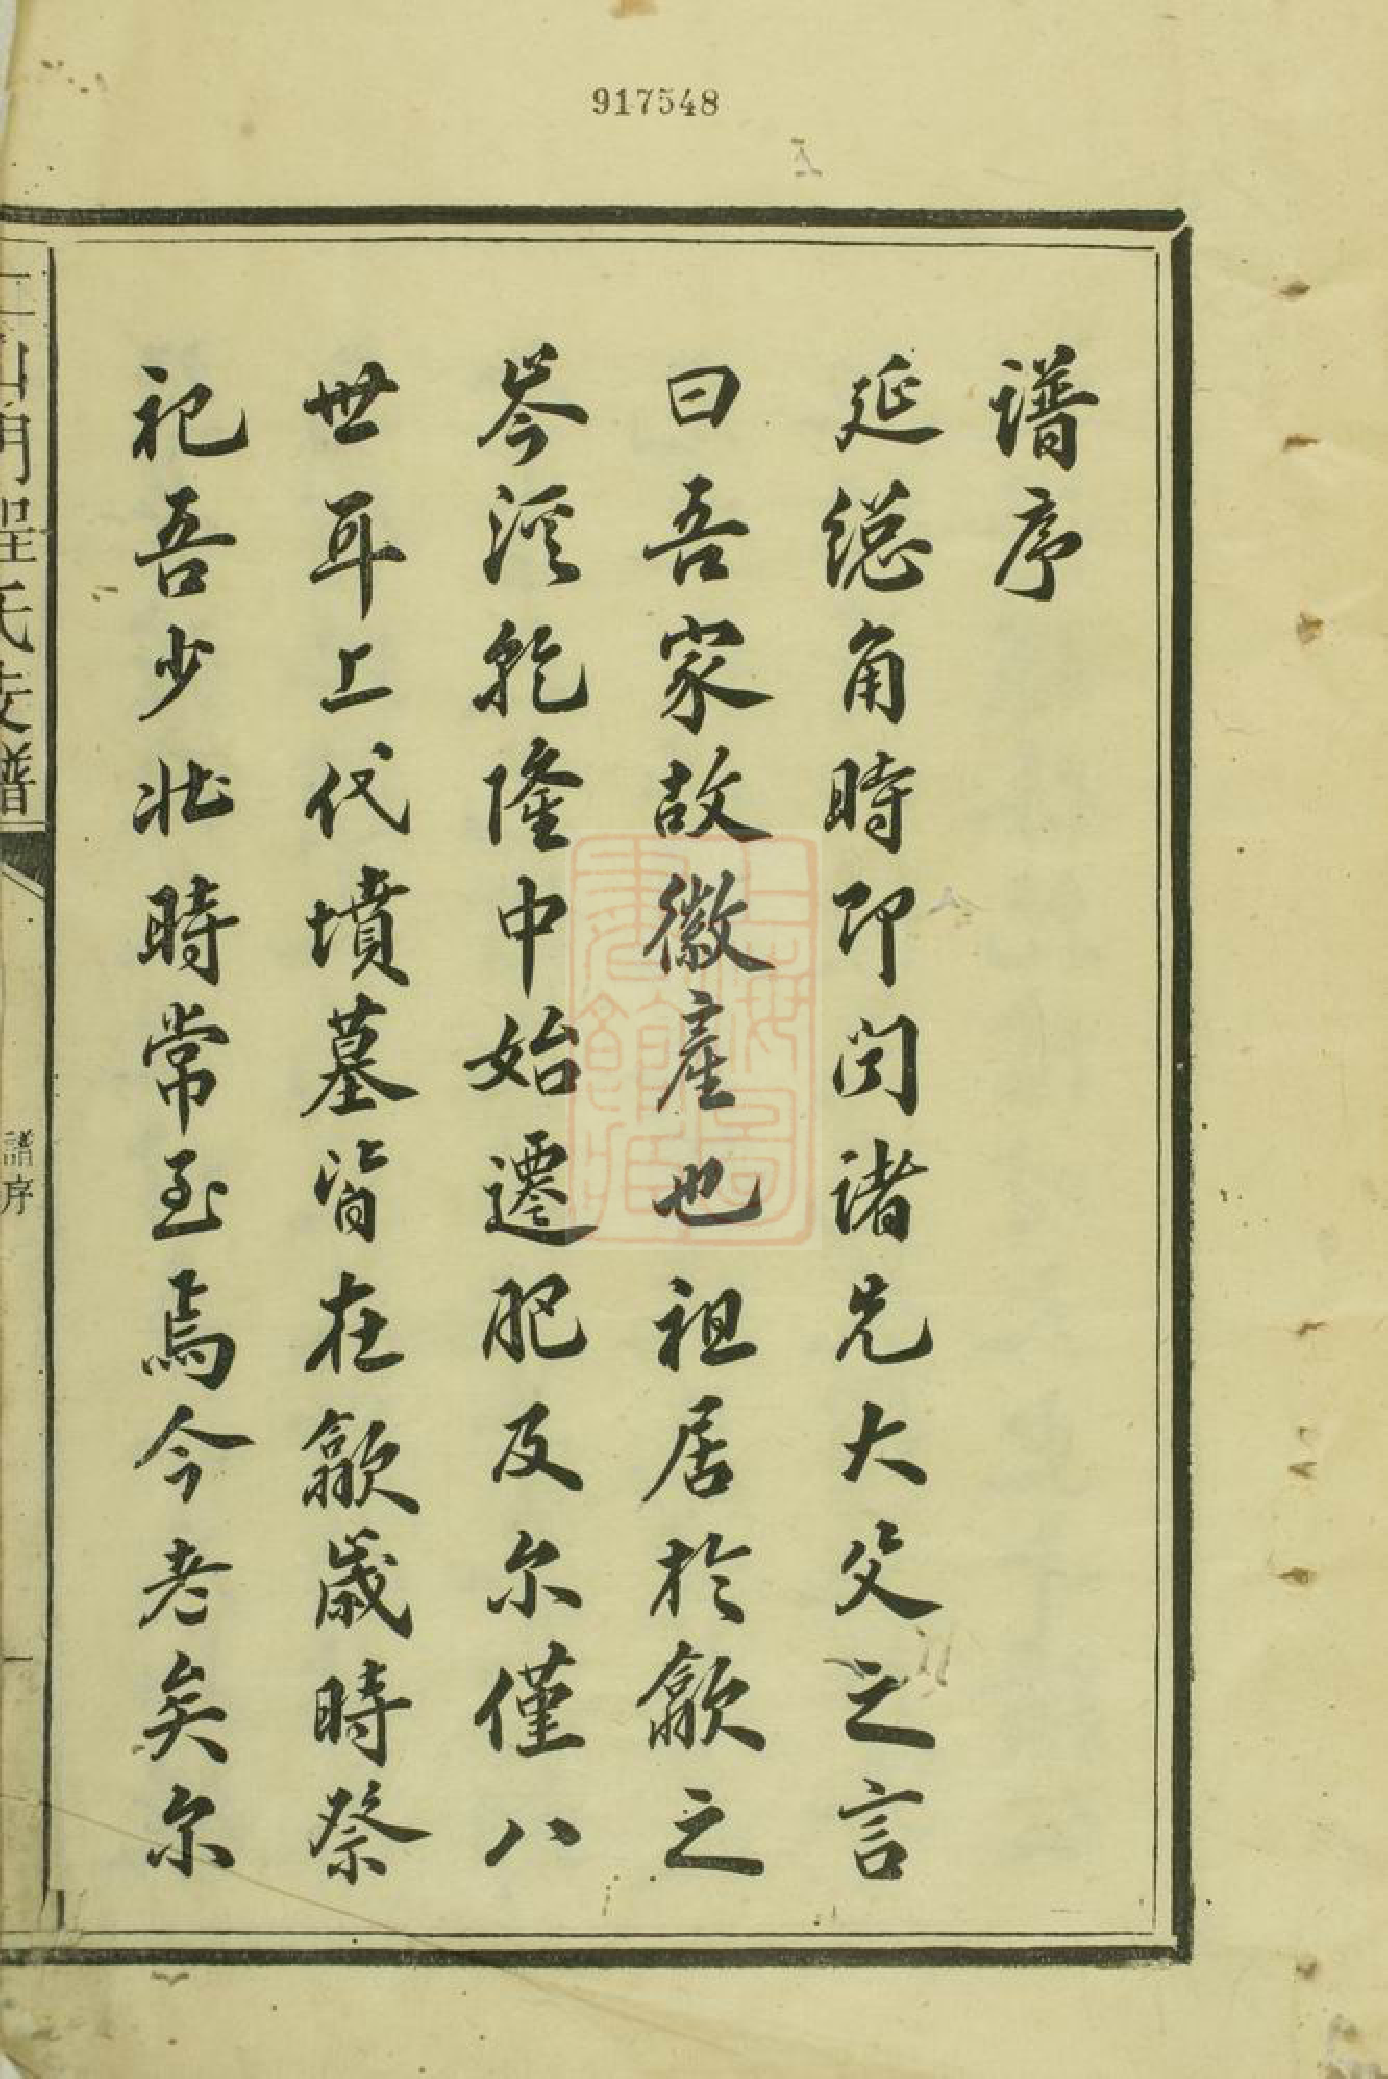 917548
譜序
延總角時即聞諸先大父之言
曰吾家故徽產也祖居於歙之
岑溪乾隆中始遷肥及尔僅八
世耳上代墳墓皆在歙歲時祭
祀吾少壯時常至焉今老矣尔
氏支譜
譜序
一
上海圖書館藏